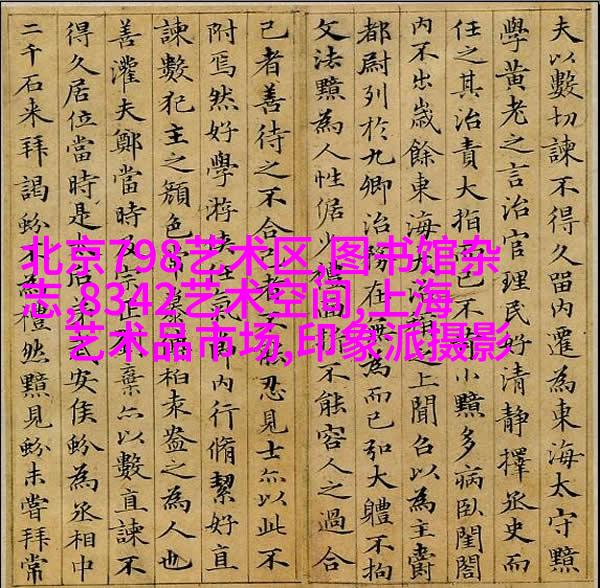 夫以數切諫不得久留内遷為東海太守黯
學黄老之言治官理民好清静擇丞史而
任之其治責大指而已不小黯多病卧閨閤
内不出歲餘東海大治稱之上聞召以為主爵
都尉列於九卿治務在無為而已弘大體不拘
文法黯為人性倨少禮面不能容人之過合
己者善待之不合己者不能忍見士亦以此不
附焉然好學游俠任氣節内行脩絜好直
諫數犯主之顔色常慕柏袁盎之為人也
善灌夫鄭當時及宗正棄亦以數直諫不
得久居位當時是太后弟武安侯蚡為丞相中
二千石来拜謁蚡不為禮然黯見蚡未嘗拜常
北京798艺术区,图书馆杂
志,8342艺术空间,上海
艺术品市场,印象派摄影